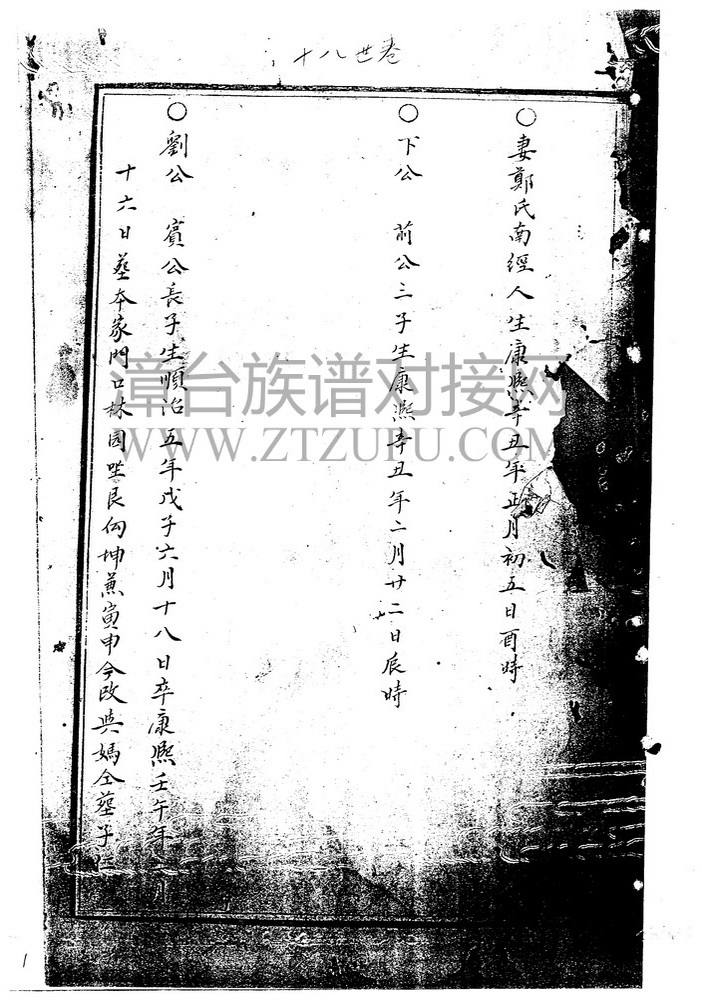 十八世卷
○妻鄭氏南經人生康熙辛丑年正月初五日酉時
○下公 前公三子生康熙辛丑年二月廿二日辰時
○劉公 賓公長子生順治五年戊子六月十八日卒康熙壬午年
十六日塟本家門口林园坐艮向坤兼寅申今改與媽仝塟子
漳台族谱对接网
WWW.ZTZUPU.COM
1